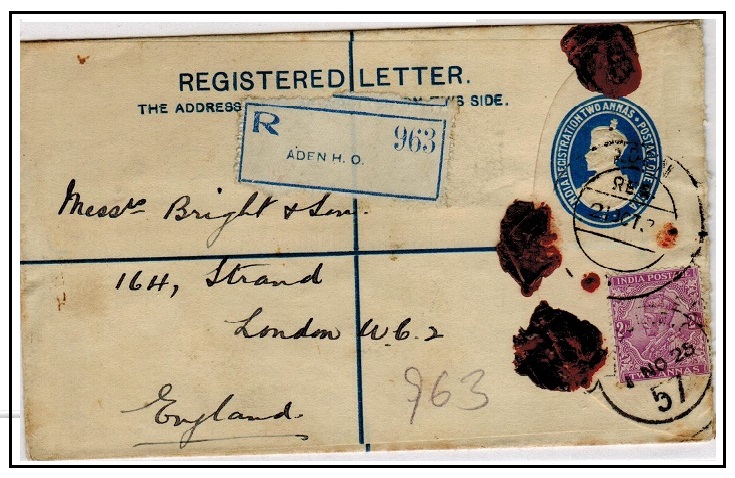 REGISTERED LETTER.
THE ADDRESS THIS SIDE.
R 963
ADEN H. O.
INDIA REGISTRATION TWO ANNAS
Messrs Bright & Son.
164, Strand
London W.C.2
England
963
REG
INDIA POSTAGE
2As
TWO ANNAS
NO 25
57